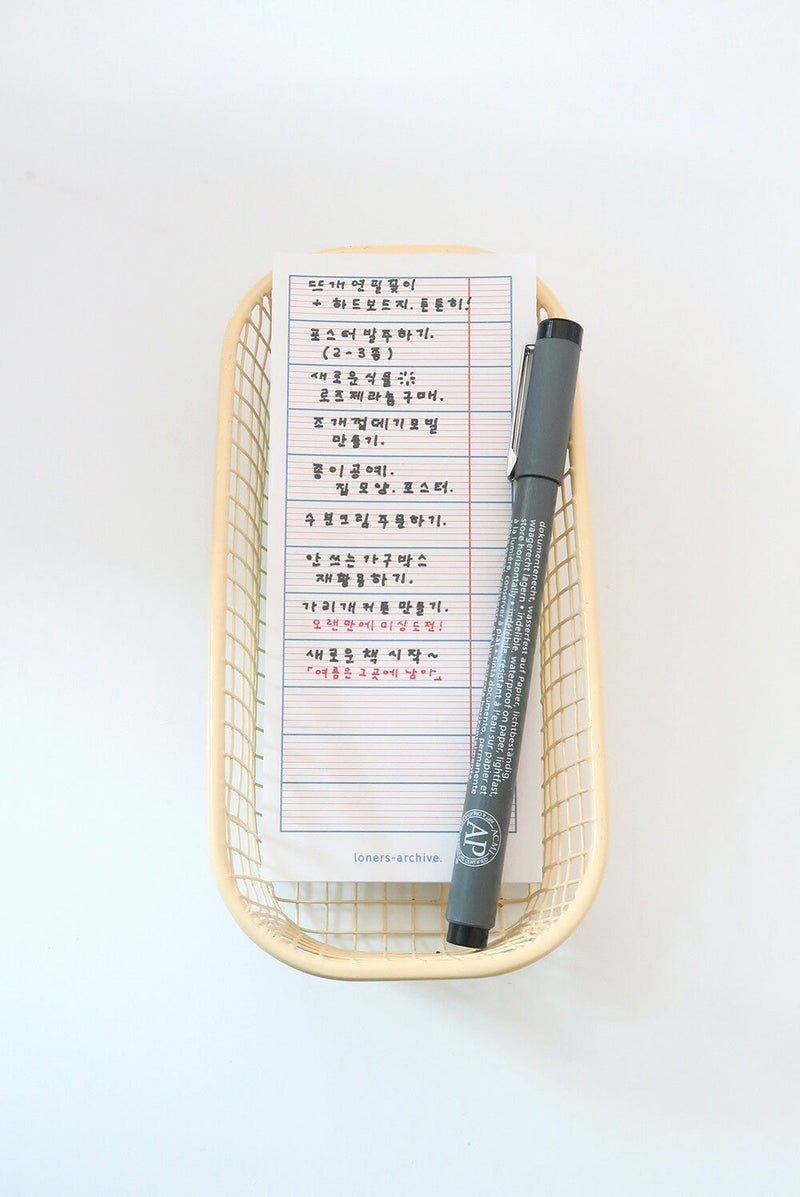 뜨개연필꽂이
+ 하드보드지. 튼튼히!
포스터 발주하기.
(2-3종)
새로운식물
로즈제라늄구매.
조개껍데기모빌
만들기.
종이공예.
집모양. 포스터.
수분크림 주문하기.
안 쓰는 가구박스
재활용하기.
가리개커튼 만들기.
오랜만에 미싱도전!
새로운 책 시작~
「여름은 그곳에 남아」
loners-archive.
dokumentenecht, wasserfest auf Papier, lichtbeständig,
waagerecht lagern • indelible, waterproof on paper, lightfast,
store horizontally • indélébile, résistant à l'eau sur papier et
à la lumière, conserver à plat
permanente
ACMI
AP